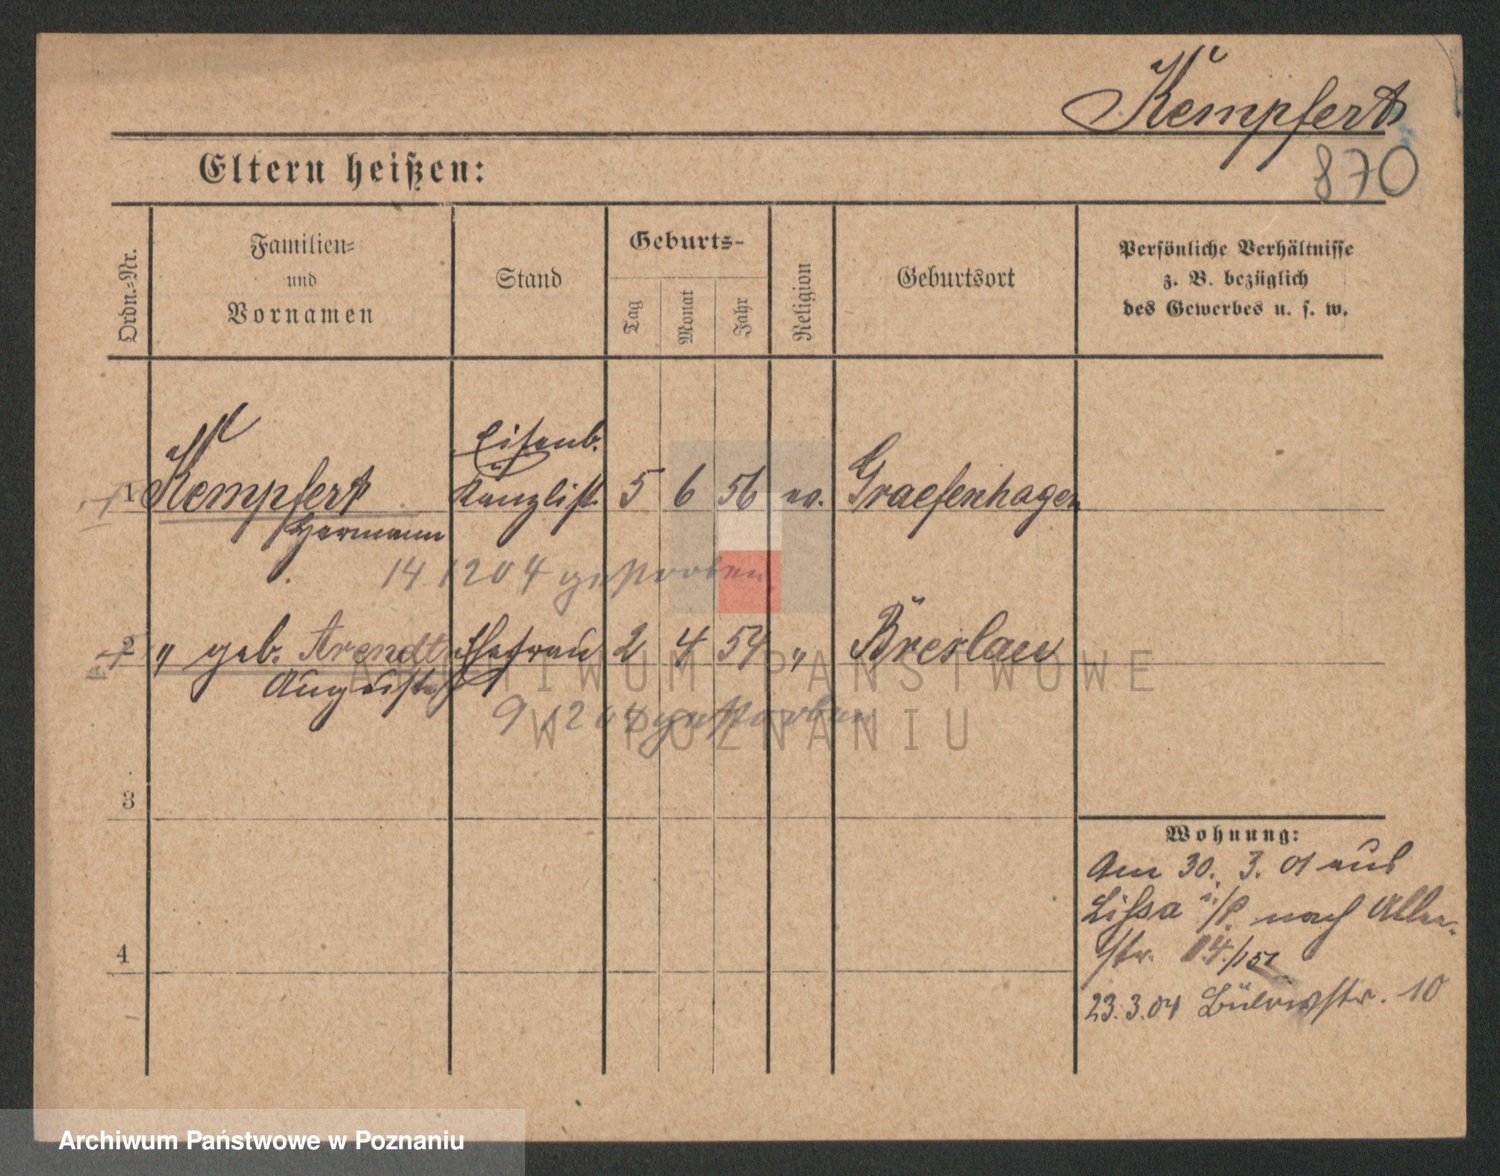 Kempfert
870
Eltern heißen:
Ordn.-Nr.
Familien-
und
Vornamen
Stand
Geburts-
Tag
Monat
Jahr
Religion
Geburtsort
Persönliche Verhältnisse
z. B. bezüglich
des Gewerbes u. s. w.
Eisenb.
1 Kempfert Kanzlist 5 6 56 ev. Graefenhagen
Hermann
14 12 04 gestorben
2 " geb. Arendt Ehefrau 2 4 54 " Breslau
Auguste
9 12 04 gestorben
ARCHIWUM PAŃSTWOWE
W POZNANIU
3
4
Wohnung:
Am 30. 3. 01 aus
Lissa i/P. nach Aller-
str.
23.3.04 Bülowstr. 10
Archiwum Państwowe w Poznaniu